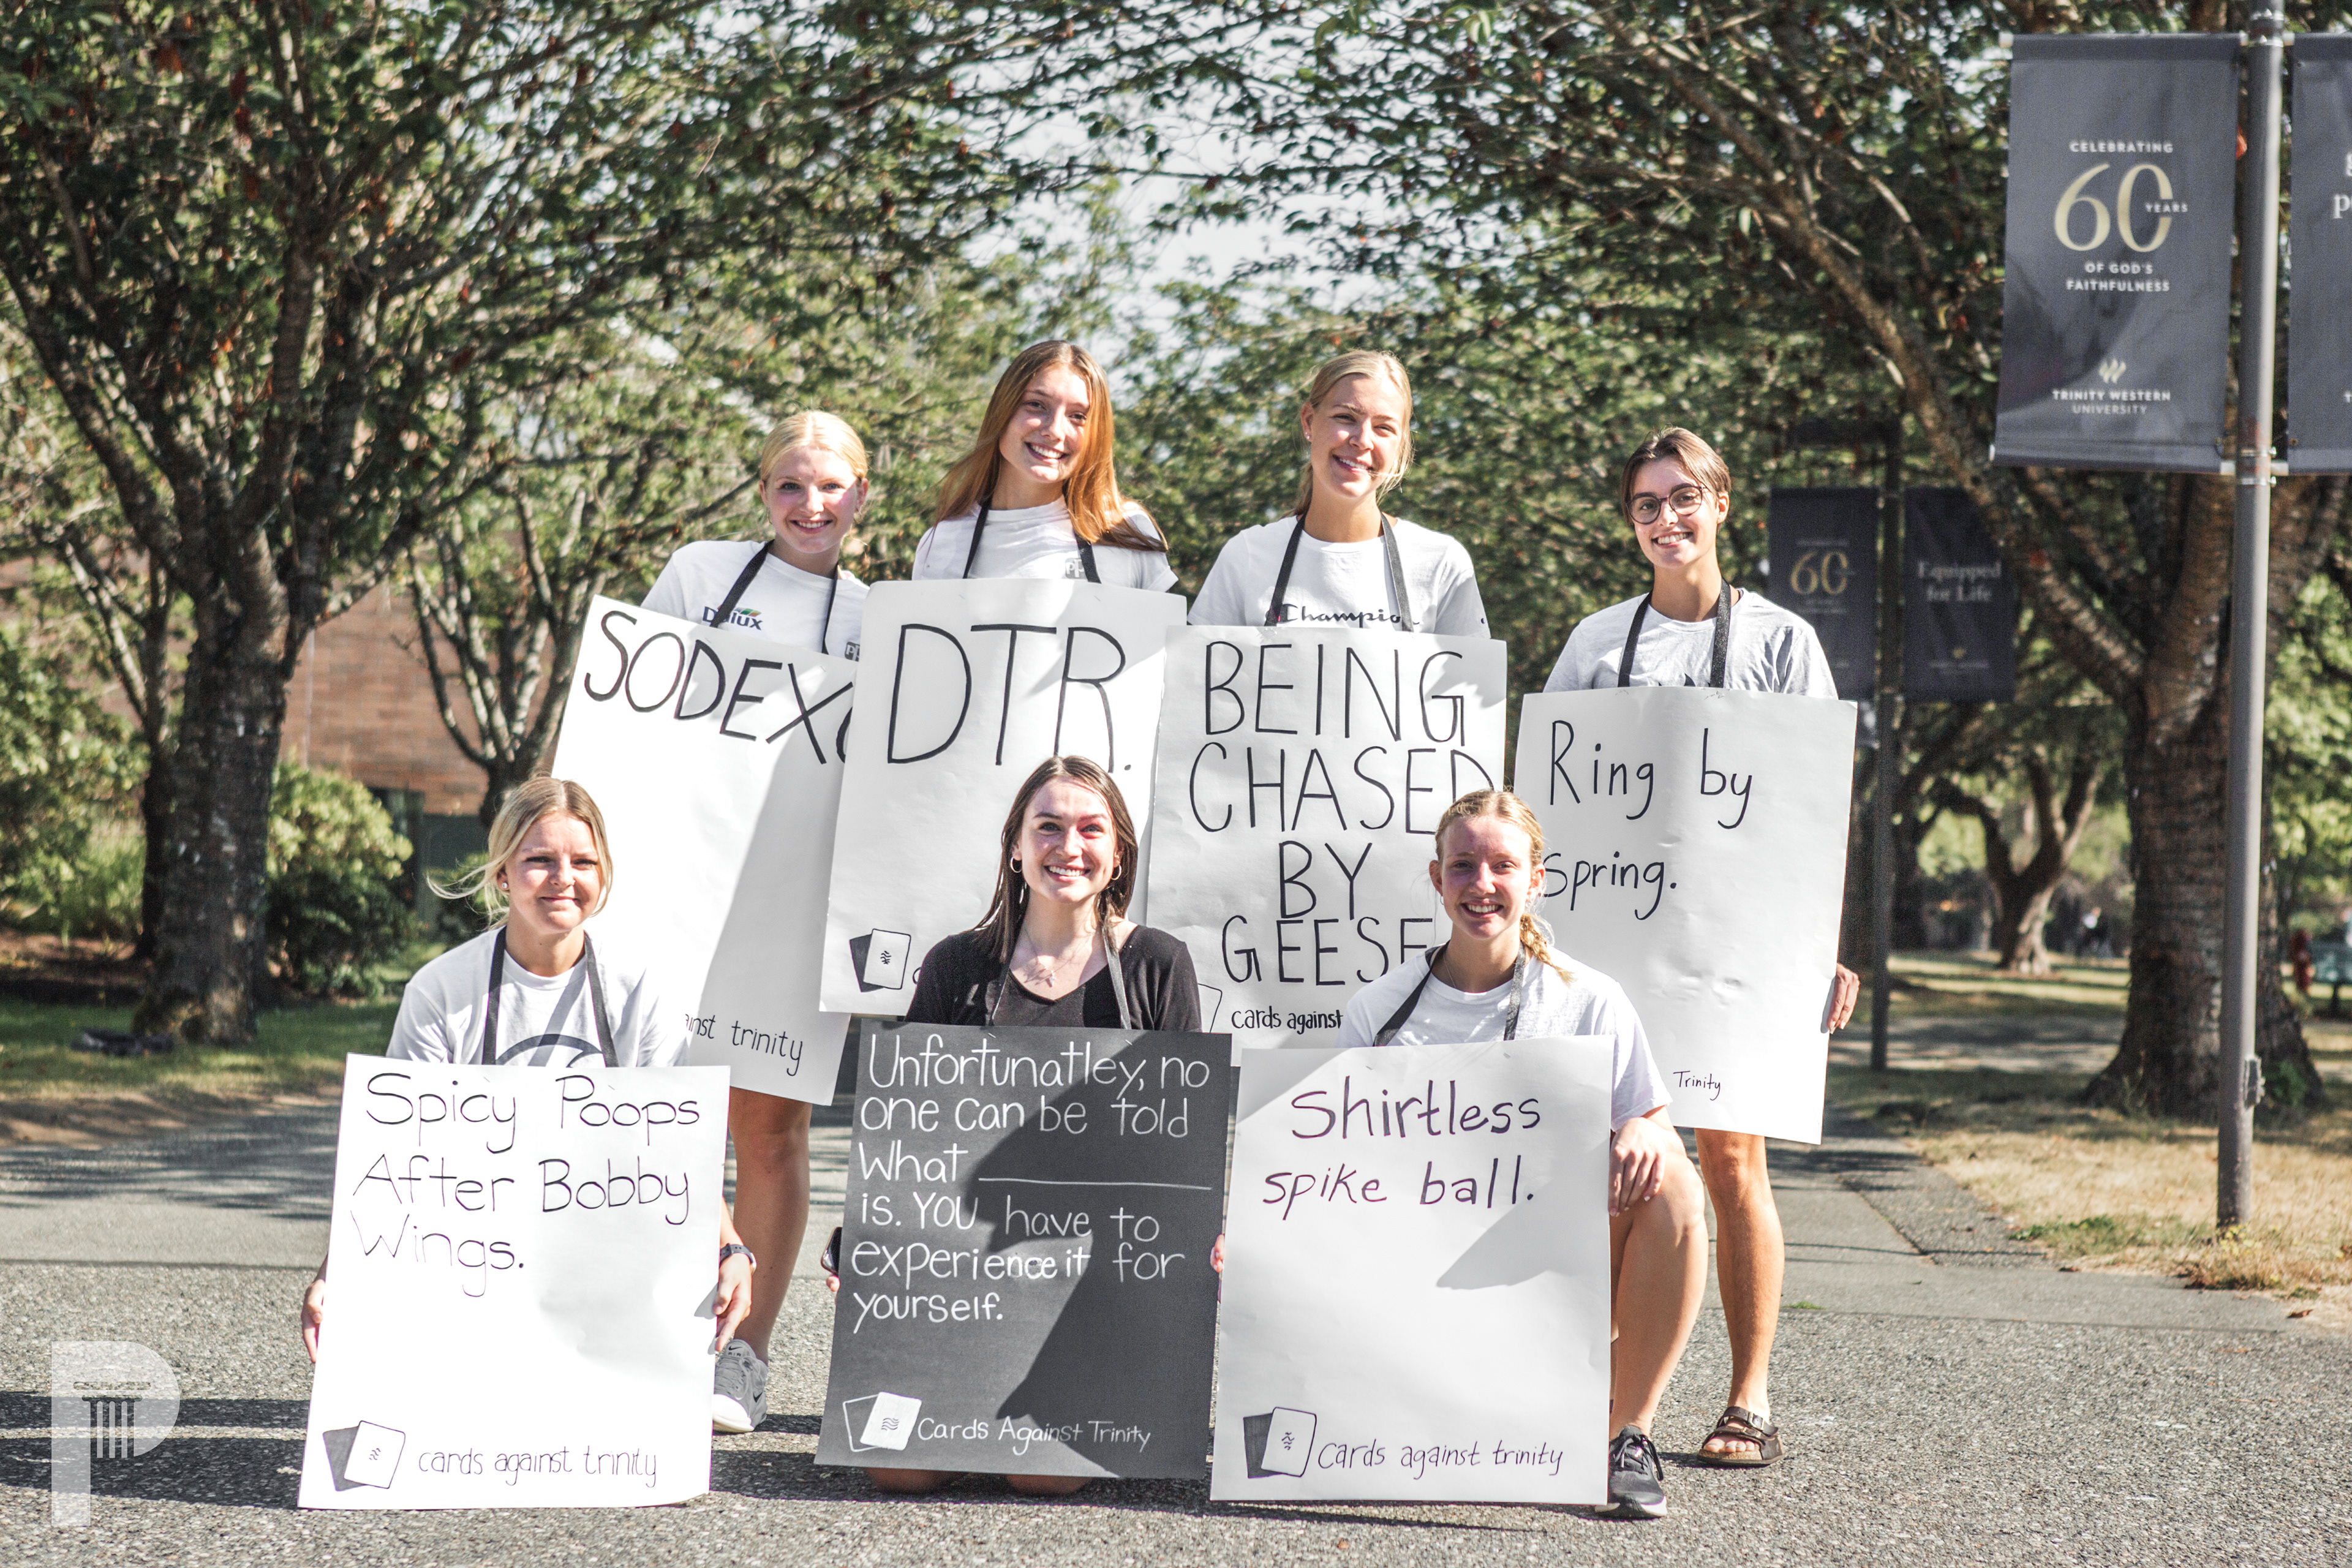 CELEBRATING
60
YEARS
OF GOD'S
FAITHFULNESS
TRINITY WESTERN
UNIVERSITY
60
Equipped
for Life
Champio
SODEXO
inst trinity
DTR.
BEING
CHASED
BY
GEESE
cards against
Ring by
Spring.
Trinity
Spicy Poops
After Bobby
Wings.
cards against trinity
Unfortunatley, no
one can be told
What ______
is. You have to
experience it for
yourself.
Cards Against Trinity
Shirtless
spike ball.
cards against trinity
P